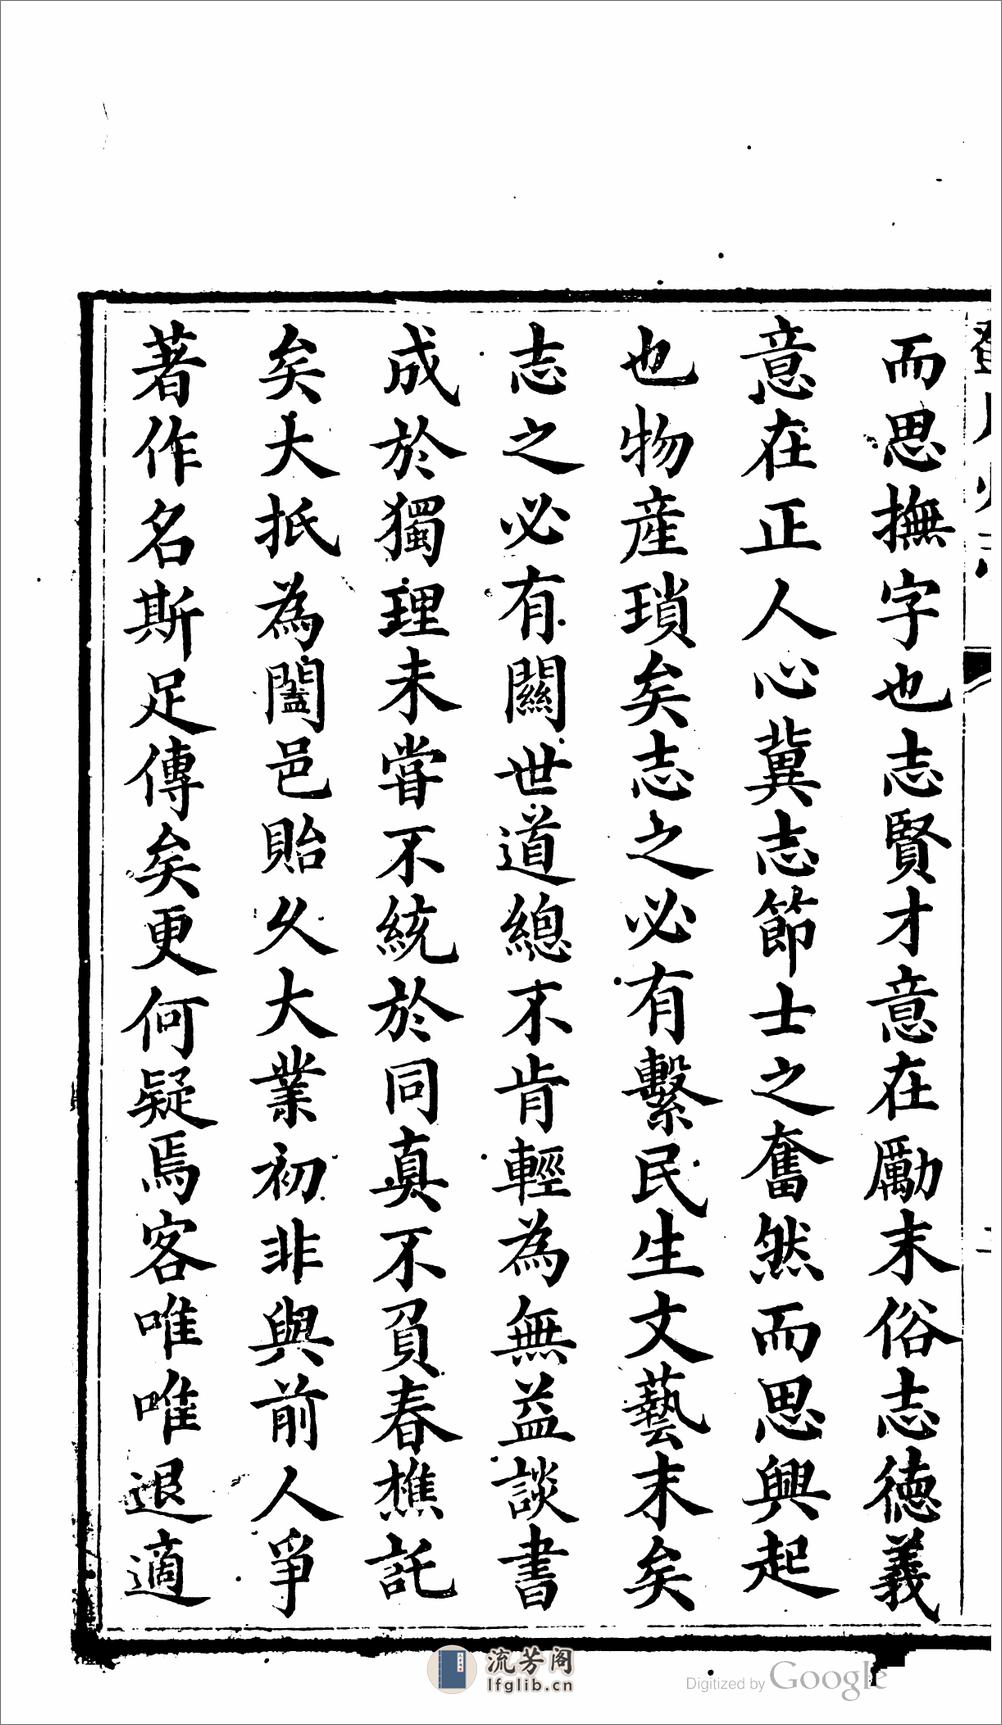 而思撫字也志賢才意在勵末俗志德義
意在正人心冀志節士之奮然而思興起
也物產瑣矣志之必有繫民生文藝末矣
志之必有關世道總不肯輕為無益談書
成於獨理未嘗不統於同真不負春樵託
矣大抵為闔邑貽久大業初非與前人爭
著作名斯足傳矣更何疑焉客唯唯退適
流芳阁
lfglib.cn
Digitized by Google